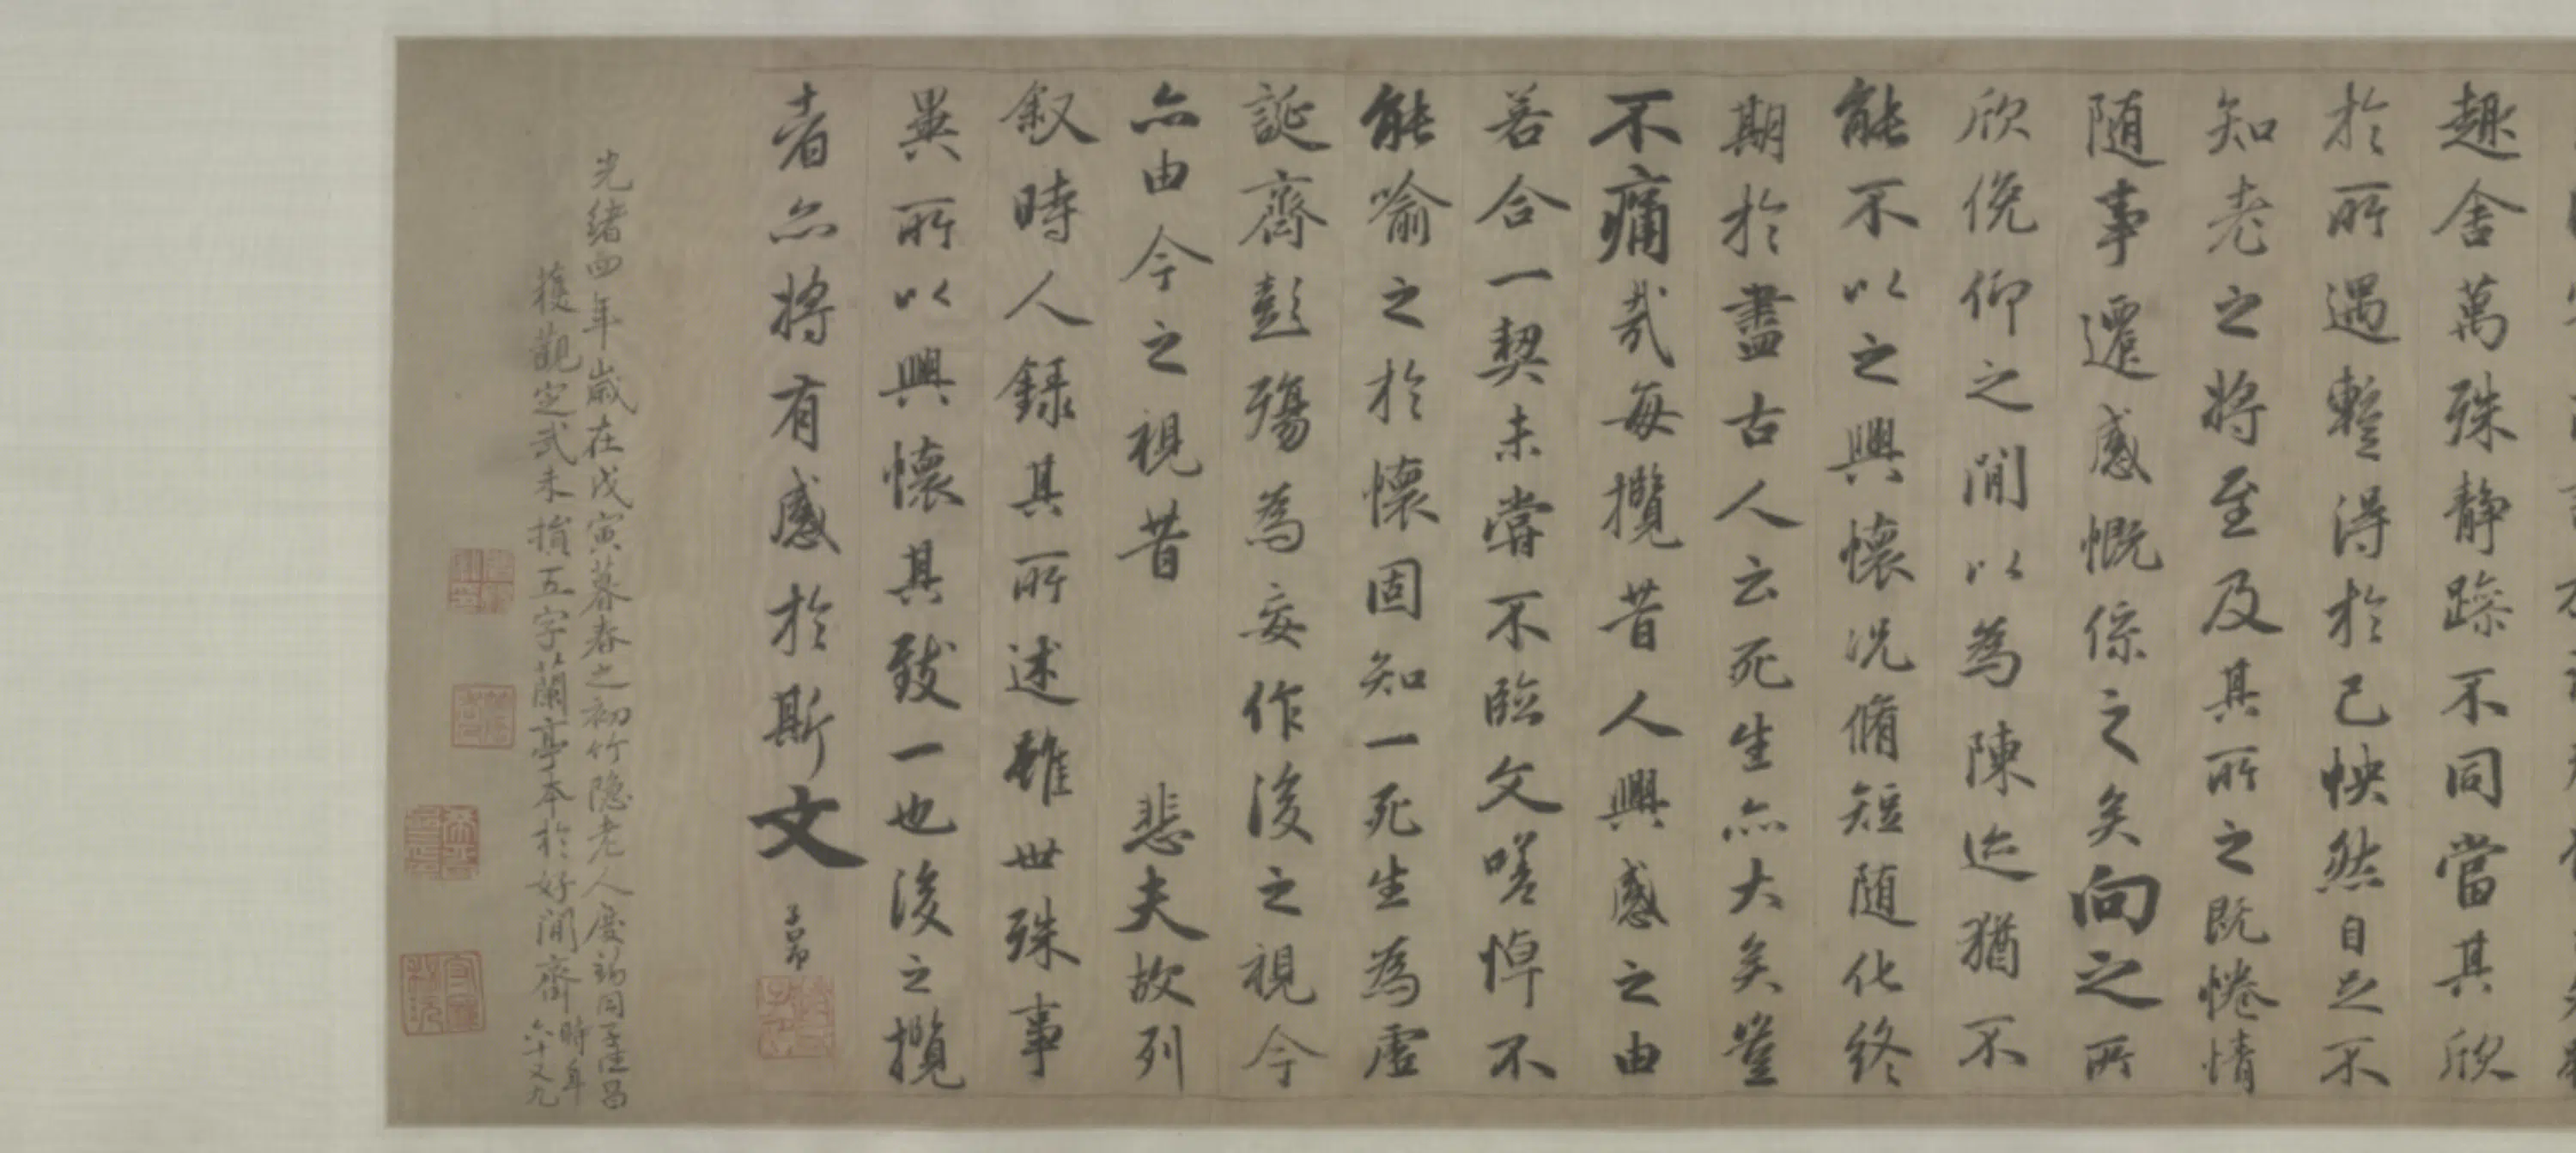 趣舍萬殊靜躁不同當其欣
於所遇暫得於己怏然自足不
知老之將至及其所之既惓情
随事遷感慨係之矣向之所
欣俛仰之閒以為陳迹猶不
能不以之興懷況脩短随化終
期於盡古人云死生亦大矣豈
不痛哉每攬昔人興感之由
若合一契未嘗不臨文嗟悼不
能喻之於懷固知一死生為虛
誕齊彭殤為妄作後之視今
亦由今之視昔 悲夫故列
叙時人錄其所述雖世殊事
異所以興懷其致一也後之攬
者亦將有感於斯文 子昂
光緒四年歲在戊寅暮春之初竹隐老人慶錫同子昌
獲觀定武未損五字蘭亭本於好閒齋時年
六十又九